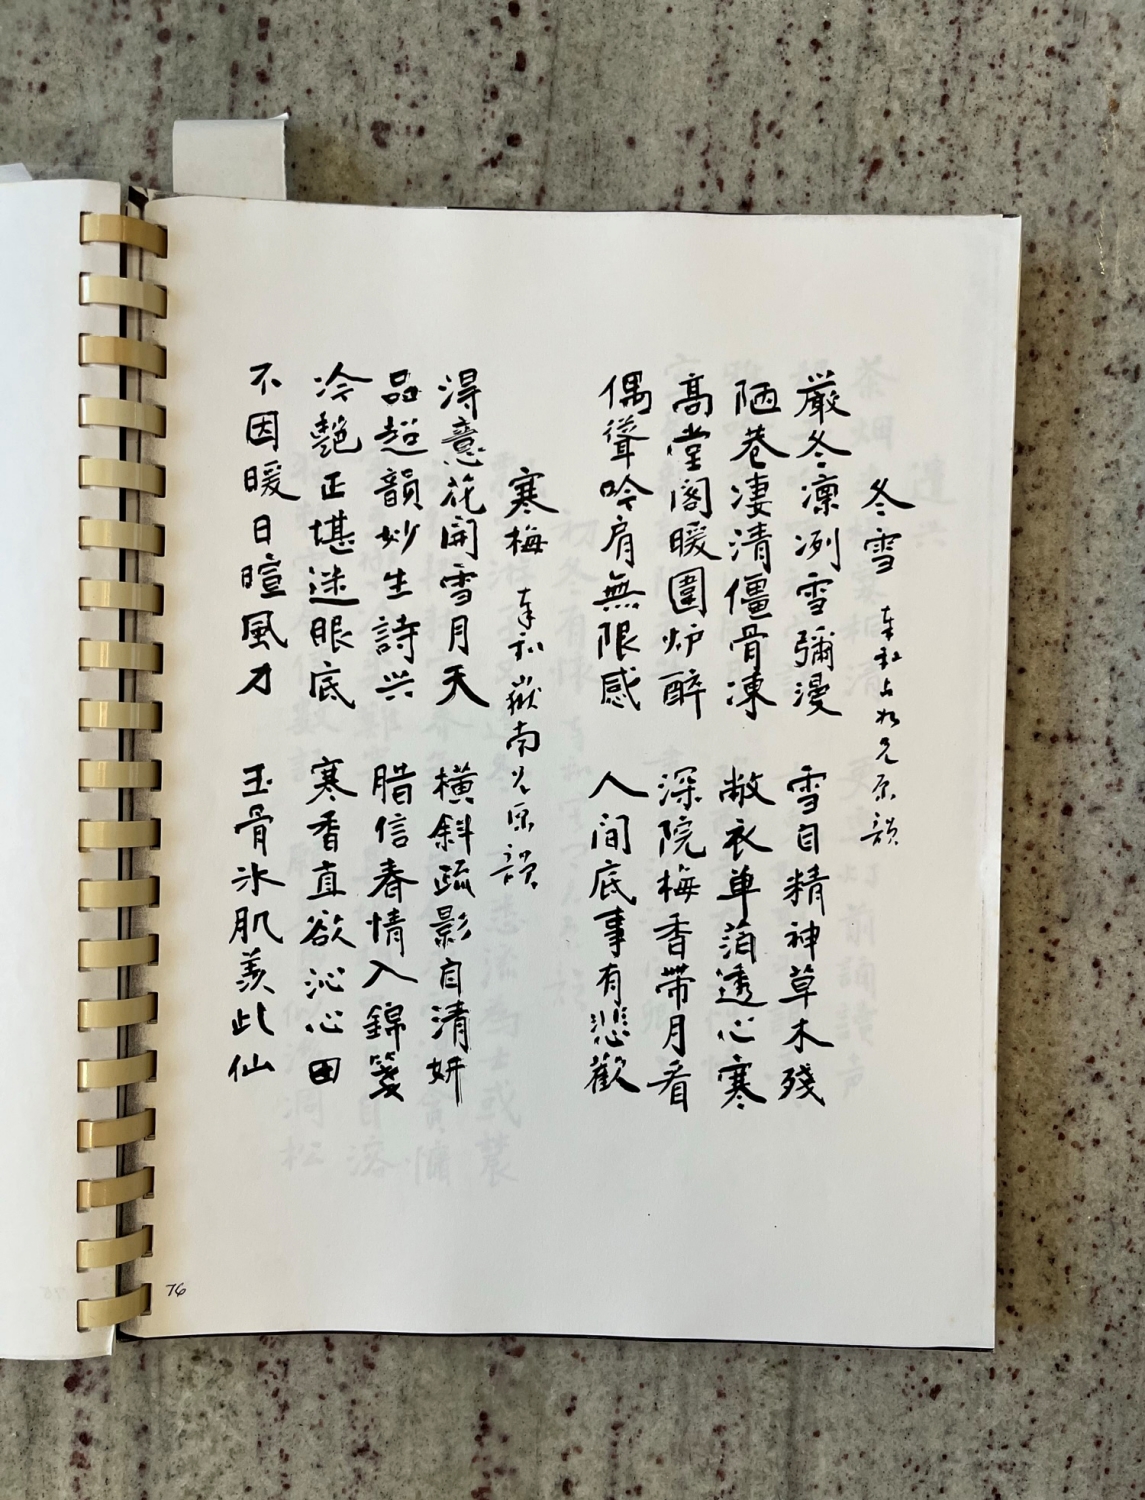 冬雪 奉和占如兄原韻
嚴冬凜冽雪彌漫 雪自精神草木殘
陋巷凄清僵骨凍 敝衣单泊透心寒
高堂閣暖圍炉醉 深院梅香带月看
偶聳吟肩無限感 人間底事有悲歡
寒梅 奉和嶽南兄原韻
得意花開雪月天 横斜疏影自清妍
品超韻妙生詩兴 腊信春情入錦箋
冷艷正堪迷眼底 寒香直欲沁心田
不因暖日暄風力 玉骨冰肌羡此仙
76